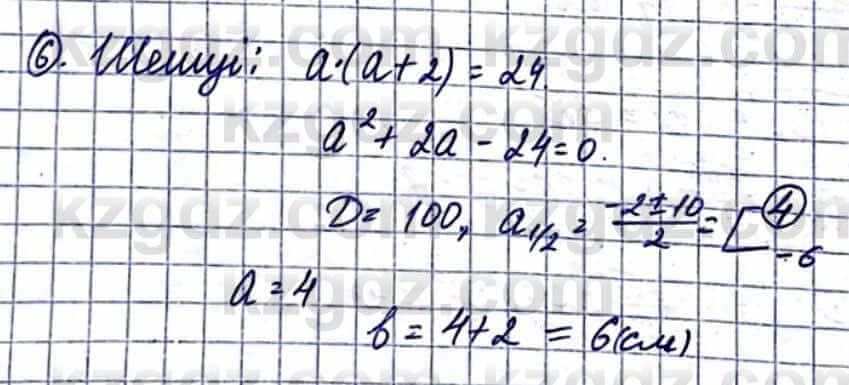 ⑥. Шешуі: a·(a+2)=24.
a²+2a-24=0.
D=100, a₁/₂=(-2±10)/2=[④ -6
a=4
b=4+2=6(см)
kzgdz.com